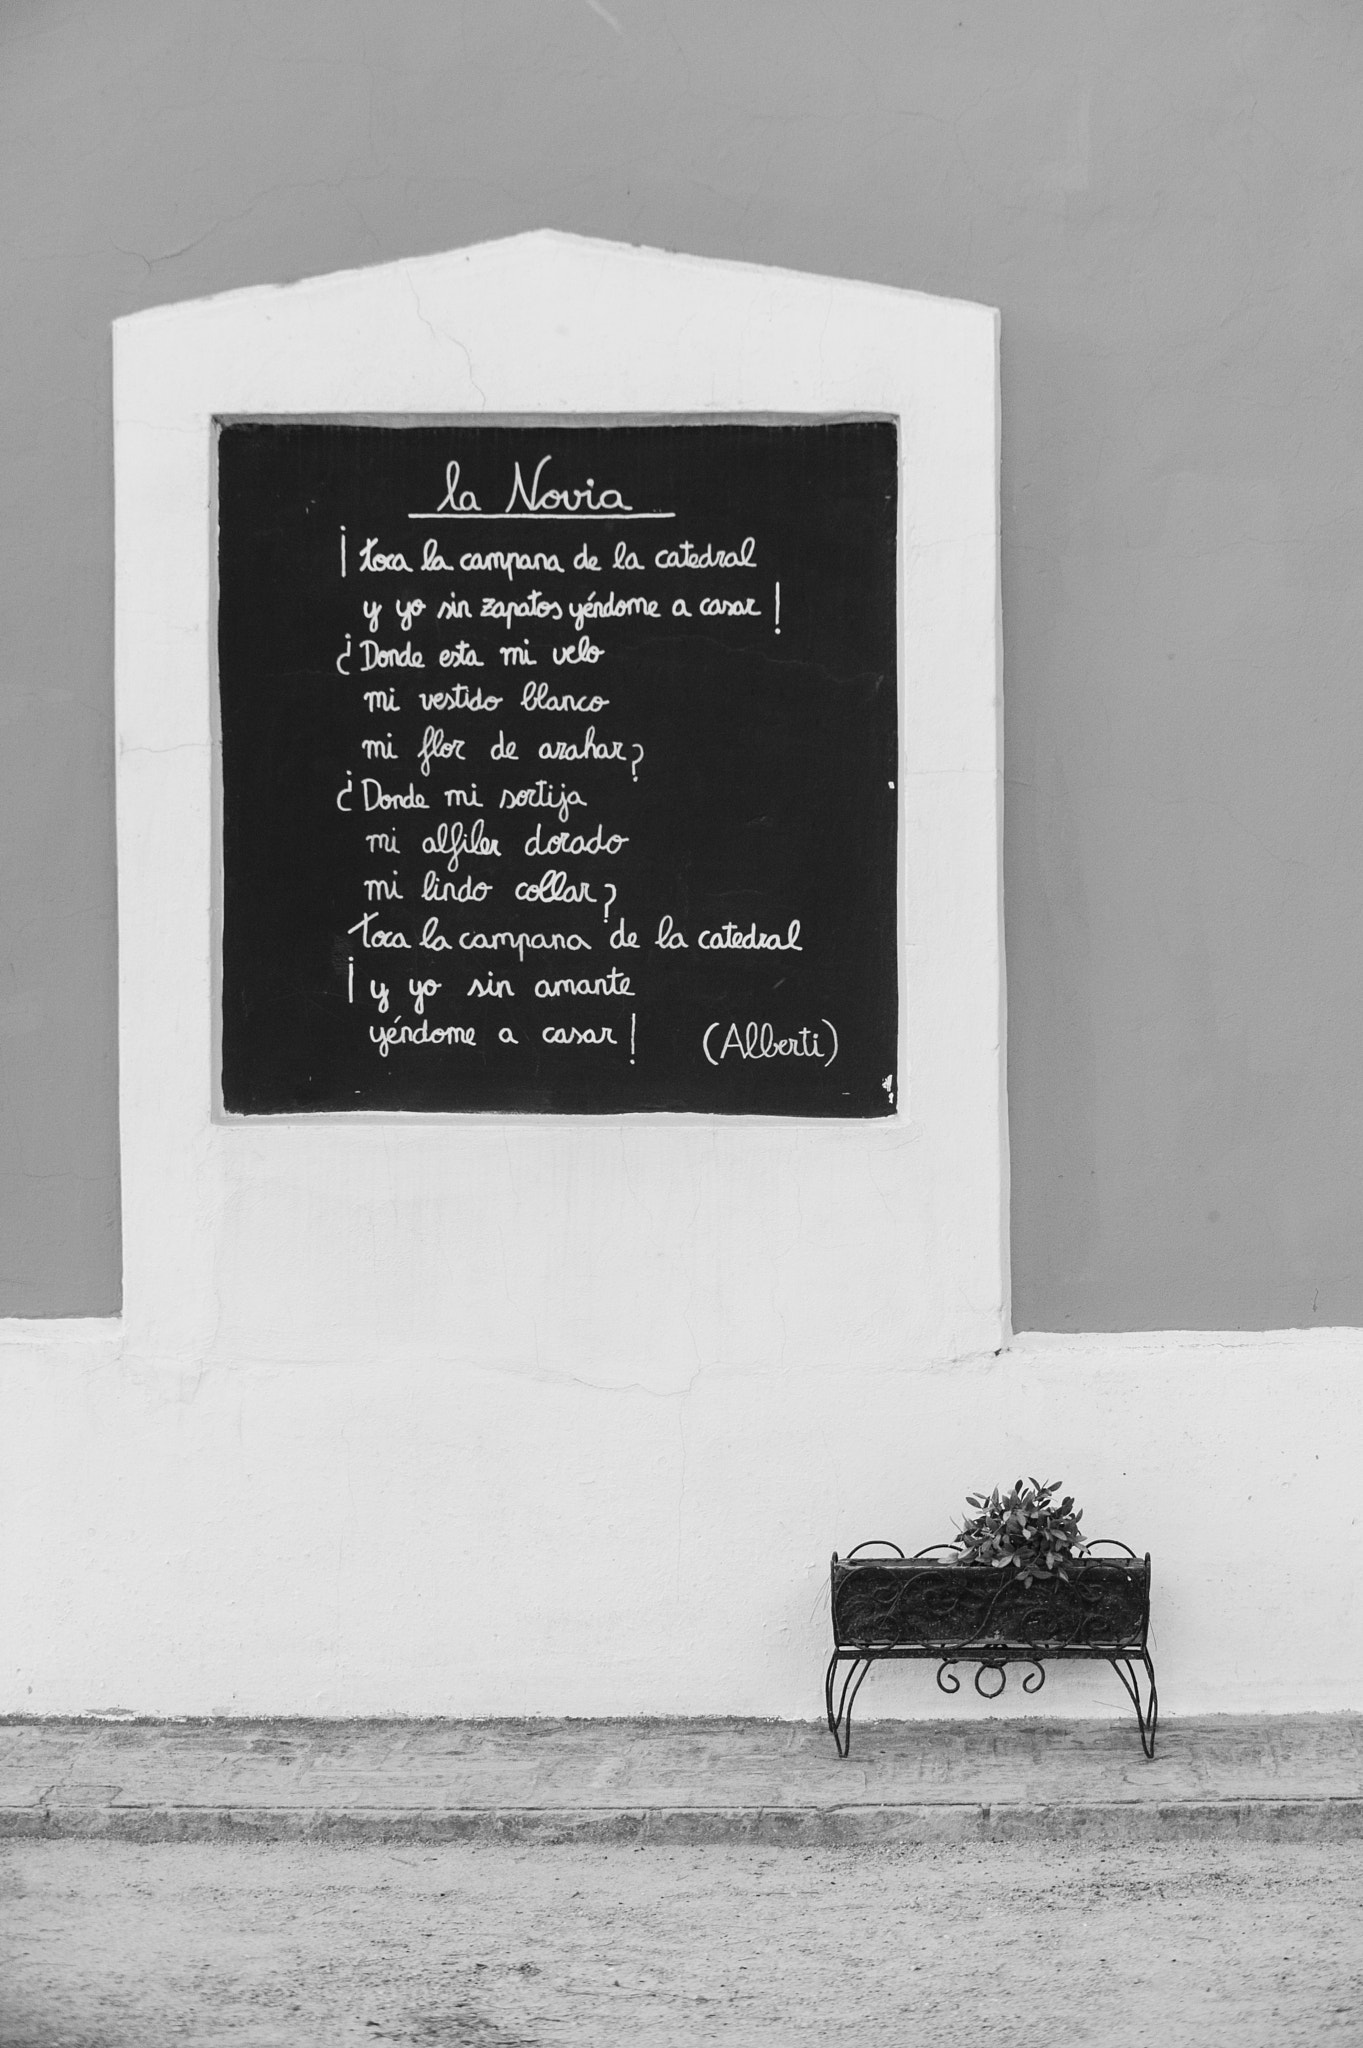 la Novia
¡toca la campana de la catedral
y yo sin zapatos yéndome a casar!
¿Donde esta mi velo
mi vestido blanco
mi flor de azahar?
¿Donde mi sortija
mi alfiler dorado
mi lindo collar?
Toca la campana de la catedral
¡y yo sin amante
yéndome a casar!
(Alberti)